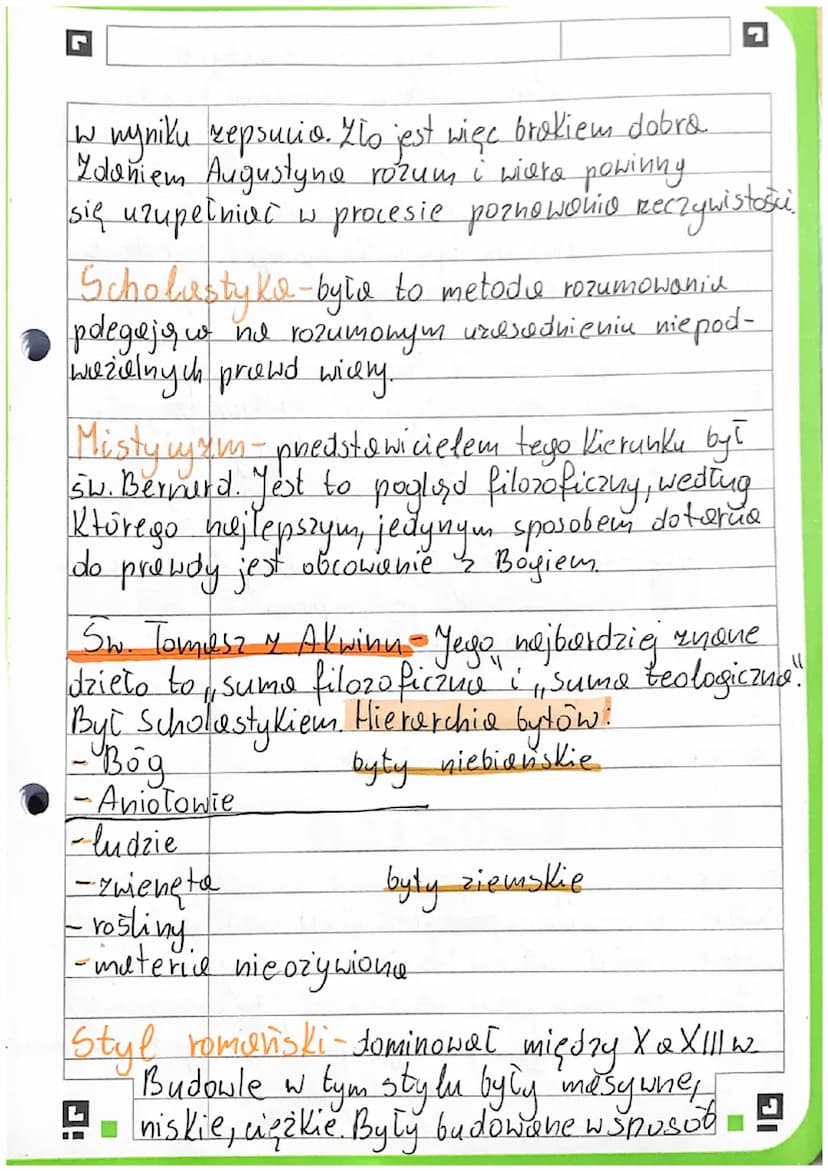 w wyniku zepsucia. Zło jest więc brakiem dobra
Zdaniem Augustyna rozum i wiara powinny
się uzupełniać w procesie poznawania rzeczywistości.
Scholastyka - była to metoda rozumowania
polegająca na rozumowym uzasadnieniu niepod-
ważalnych prawd wiary.
Mistycyzm - przedstawicielem tego kierunku był
św. Bernard. Jest to pogląd filozoficzny, według
którego najlepszym, jedynym sposobem dotarcia
do prawdy jest obcowanie z Bogiem.
Św. Tomasz z Akwinu - Jego najbardziej znane
dzieło to „suma filozoficzna" i „suma teologiczna".
Był Scholastykiem. Hierarchia bytów:
- Bóg byty niebiańskie
- Aniołowie
- ludzie
- zwierzęta byty ziemskie
- rośliny
- materia nieożywiona
Styl romański - dominował między X a XIII w.
Budowle w tym stylu były masywne,
niskie, ciężkie. Były budowane w sposób